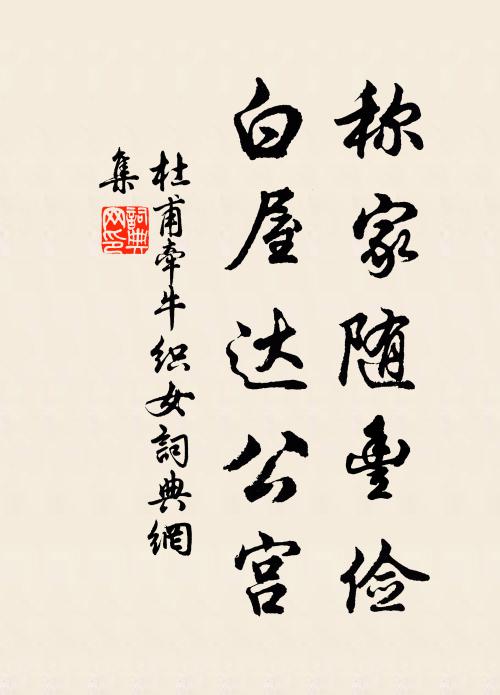 称家随豊俭
白屋达公宫
杜甫牵牛织女詞典網
集
詞典
网印